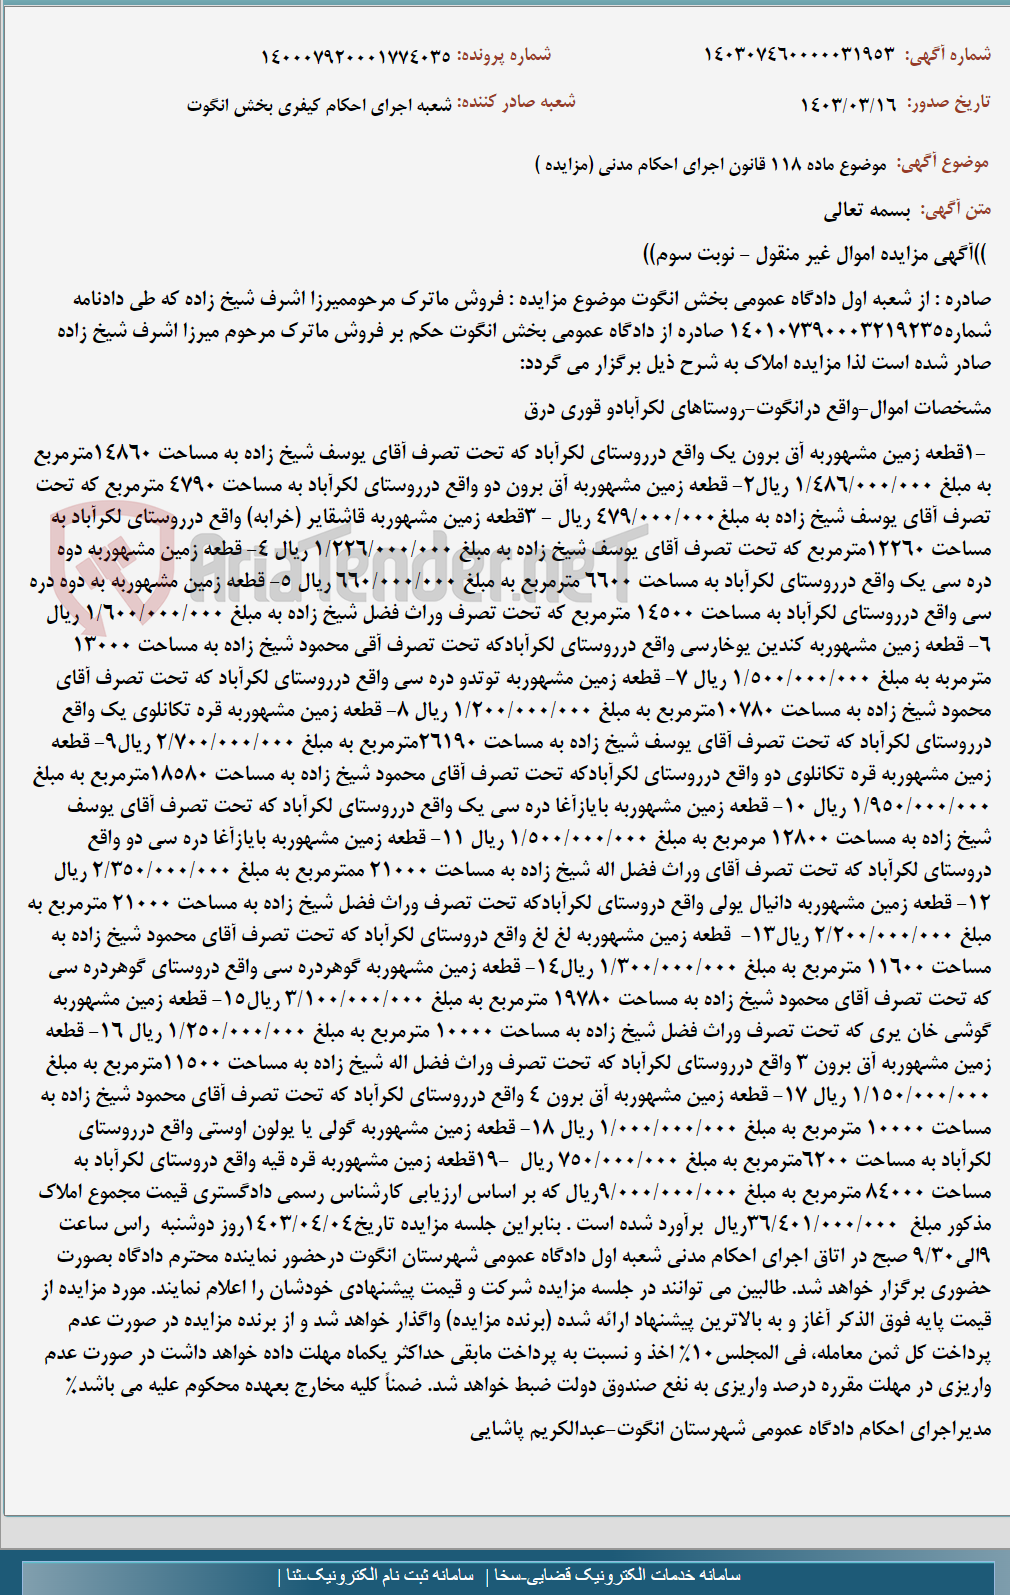 شماره آگهی: ۱۴۰۳۰۷۴۶۰۰۰۰۰۳۱۹۵۳ شماره پرونده: ۱۴۰۰۰۷۹۲۰۰۰۱۷۷۴۰۳۵
تاریخ صدور: ۱۴۰۳/۰۳/۱۶ شعبه صادر کننده: شعبه اجرای احکام کیفری بخش انگوت
موضوع آگهی: موضوع ماده ۱۱۸ قانون اجرای احکام مدنی (مزایده )
متن آگهی: بسمه تعالی
))آگهی مزایده اموال غیر منقول - نوبت سوم))
صادره : از شعبه اول دادگاه عمومی بخش انگوت موضوع مزایده : فروش ماترک مرحوممیرزا اشرف شیخ زاده که طی دادنامه
شماره۱۴۰۱۰۷۳۹۰۰۰۳۲۱۹۲۳۵ صادره از دادگاه عمومی بخش انگوت حکم بر فروش ماترک مرحوم میرزا اشرف شیخ زاده
صادر شده است لذا مزایده املاک به شرح ذیل برگزار می گردد:
مشخصات اموال-واقع درانگوت-روستاهای لکرآبادو قوری درق
-۱قطعه زمین مشهوربه آق برون یک واقع درروستای لکرآباد که تحت تصرف آقای یوسف شیخ زاده به مساحت ۱۴۸۶۰مترمربع
به مبلغ ۱/۴۸۶/۰۰۰/۰۰۰ ریال۲- قطعه زمین مشهوربه آق برون دو واقع درروستای لکرآباد به مساحت ۴۷۹۰ مترمربع که تحت
تصرف آقای یوسف شیخ زاده به مبلغ۴۷۹/۰۰۰/۰۰۰ ریال - ۳قطعه زمین مشهوربه قاشقایر (خرابه) واقع درروستای لکرآباد به
مساحت ۱۲۲۶۰مترمربع که تحت تصرف آقای یوسف شیخ زاده به مبلغ ۱/۲۲۶/۰۰۰/۰۰۰ ریال ۴- قطعه زمین مشهوربه دوه
دره سی یک واقع درروستای لکرآباد به مساحت ۶۶۰۰ مترمربع به مبلغ ۶۶۰/۰۰۰/۰۰۰ ریال ۵- قطعه زمین مشهوربه به دوه دره
سی واقع درروستای لکرآباد به مساحت ۱۴۵۰۰ مترمربع که تحت تصرف وراث فضل شیخ زاده به مبلغ ۱/۶۰۰/۰۰۰/۰۰۰ ریال
۶- قطعه زمین مشهوربه کندین یوخارسی واقع درروستای لکرآبادکه تحت تصرف آقی محمود شیخ زاده به مساحت ۱۳۰۰۰
مترمربه به مبلغ ۱/۵۰۰/۰۰۰/۰۰۰ ریال ۷- قطعه زمین مشهوربه توتدو دره سی واقع درروستای لکرآباد که تحت تصرف آقای
محمود شیخ زاده به مساحت ۱۰۷۸۰مترمربع به مبلغ ۱/۲۰۰/۰۰۰/۰۰۰ ریال ۸- قطعه زمین مشهوربه قره تکانلوی یک واقع
درروستای لکرآباد که تحت تصرف آقای یوسف شیخ زاده به مساحت ۲۶۱۹۰مترمربع به مبلغ ۲/۷۰۰/۰۰۰/۰۰۰ ریال۹- قطعه
زمین مشهوربه قره تکانلوی دو واقع درروستای لکرآبادکه تحت تصرف آقای محمود شیخ زاده به مساحت ۱۸۵۸۰مترمربع به مبلغ
۱/۹۵۰/۰۰۰/۰۰۰ ریال ۱۰- قطعه زمین مشهوربه بایازآغا دره سی یک واقع درروستای لکرآباد که تحت تصرف آقای یوسف
شیخ زاده به مساحت ۱۲۸۰۰ مرمربع به مبلغ ۱/۵۰۰/۰۰۰/۰۰۰ ریال ۱۱- قطعه زمین مشهوربه بایازآغا دره سی دو واقع
دروستای لکرآباد که تحت تصرف آقای وراث فضل اله شیخ زاده به مساحت ۲۱۰۰۰ ممترمربع به مبلغ ۲/۳۵۰/۰۰۰/۰۰۰ ریال
۱۲- قطعه زمین مشهوربه دانیال یولی واقع دروستای لکرآبادکه تحت تصرف وراث فضل شیخ زاده به مساحت ۲۱۰۰۰ مترمربع به
مبلغ ۲/۲۰۰/۰۰۰/۰۰۰ ریال۱۳- قطعه زمین مشهوربه لغ لغ واقع دروستای لکرآباد که تحت تصرف آقای محمود شیخ زاده به
مساحت ۱۱۶۰۰ مترمربع به مبلغ ۱/۳۰۰/۰۰۰/۰۰۰ ریال۱۴- قطعه زمین مشهوربه گوهردره سی واقع دروستای گوهردره سی
که تحت تصرف آقای محمود شیخ زاده به مساحت ۱۹۷۸۰ مترمربع به مبلغ ۳/۱۰۰/۰۰۰/۰۰۰ ریال۱۵- قطعه زمین مشهوربه
گوشی خان یری که تحت تصرف وراث فضل شیخ زاده به مساحت ۱۰۰۰۰ مترمربع به مبلغ ۱/۲۵۰/۰۰۰/۰۰۰ ریال ۱۶- قطعه
زمین مشهوربه آق برون ۳ واقع درروستای لکرآباد که تحت تصرف وراث فضل اله شیخ زاده به مساحت ۱۱۵۰۰مترمربع به مبلغ
۱/۱۵۰/۰۰۰/۰۰۰ ریال ۱۷- قطعه زمین مشهوربه آق برون ۴ واقع درروستای لکرآباد که تحت تصرف آقای محمود شیخ زاده به
مساحت ۱۰۰۰۰ مترمربع به مبلغ ۱/۰۰۰/۰۰۰/۰۰۰ ریال ۱۸- قطعه زمین مشهوربه گولی یا یولون اوستی واقع درروستای
لکرآباد به مساحت ۶۲۰۰مترمربع به مبلغ ۷۵۰/۰۰۰/۰۰۰ ریال -۱۹قطعه زمین مشهوربه قره قیه واقع دروستای لکرآباد به
مساحت ۸۴۰۰۰ مترمربع به مبلغ ۹/۰۰۰/۰۰۰/۰۰۰ریال که بر اساس ارزیابی کارشناس رسمی دادگستری قیمت مجموع املاک
مذکور مبلغ ۳۶/۴۰۱/۰۰۰/۰۰۰ریال برآورد شده است . بنابراین جلسه مزایده تاریخ۱۴۰۳/۰۴/۰۴روز دوشنبه راس ساعت
۹الی۹/۳۰ صبح در اتاق اجرای احکام مدنی شعبه اول دادگاه عمومی شهرستان انگوت درحضور نماینده محترم دادگاه بصورت
حضوری برگزار خواهد شد. طالبین می توانند در جلسه مزایده شرکت و قیمت پیشنهادی خودشان را اعلام نمایند. مورد مزایده از
قیمت پایه فوق الذکر آغاز و به بالاترین پیشنهاد ارائه شده (برنده مزایده) واگذار خواهد شد و از برنده مزایده در صورت عدم
پرداخت کل ثمن معامله، فی المجلس۱۰٪ اخذ و نسبت به پرداخت مابقی حداکثر یکماه مهلت داده خواهد داشت در صورت عدم
واریزی در مهلت مقرره درصد واریزی به نفع صندوق دولت ضبط خواهد شد. ضمناً کلیه مخارج بعهده محکوم علیه می باشد٪
مدیراجرای احکام دادگاه عمومی شهرستان انگوت-عبدالکریم پاشایی
AriaTender.neT
سامانه خدمات الکترونیک قضایی-سخا | سامانه ثبت نام الکترونیک-ثنا |